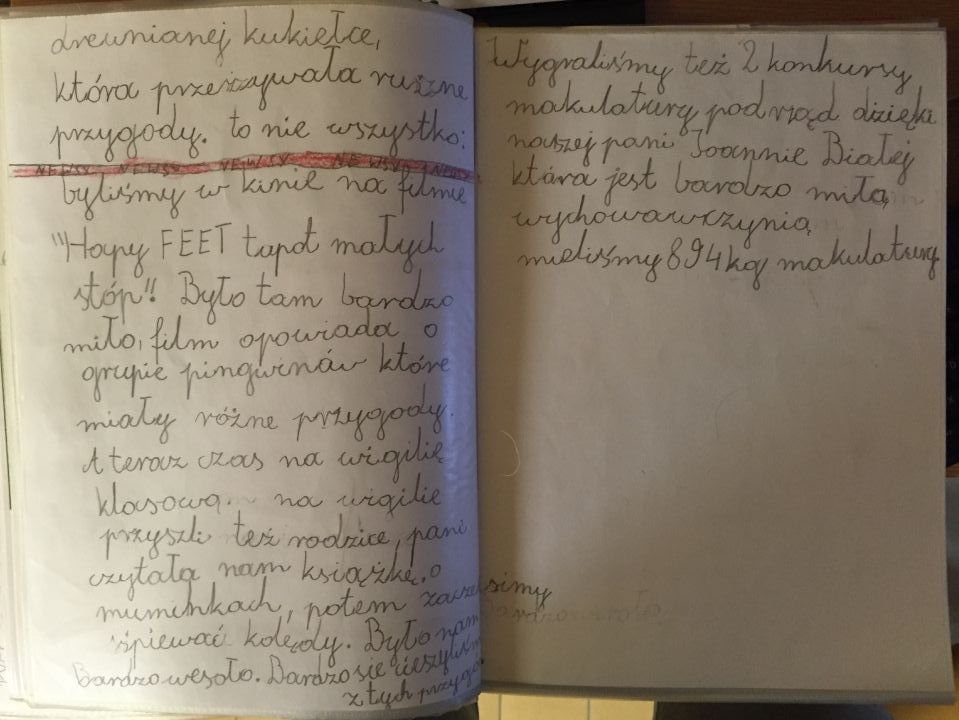 drewnianej kukiełce,
która przeżzywała rużzne
przygody. to nie wszystko:
NEWSY NEWSY NEWSY NEWSY NEWSY
byliśmy w kinie na filmie
"Hapy FEET tupot małych
stóp"! Było tam bardzo
miło, film opowiada o
grupie pingwinów które
miały różne przygody.
A teraz czas na wigilię
klasową. na wigilie
przyszli też rodzice, pani
czytała nam książkę, o
muminkach, potem zaczelismy
śpiewać kolędy. Było nam
Bardzo wesoło. Bardzo sie cieszyliśmy
z tych przygód
Wygraliśmy też 2 konkursy
makulatury pod rząd dzięki
naszej pani Joannie Białej
która jest bardzo miłą
wychowawczynią
mieliśmy 894 kg makulatury.